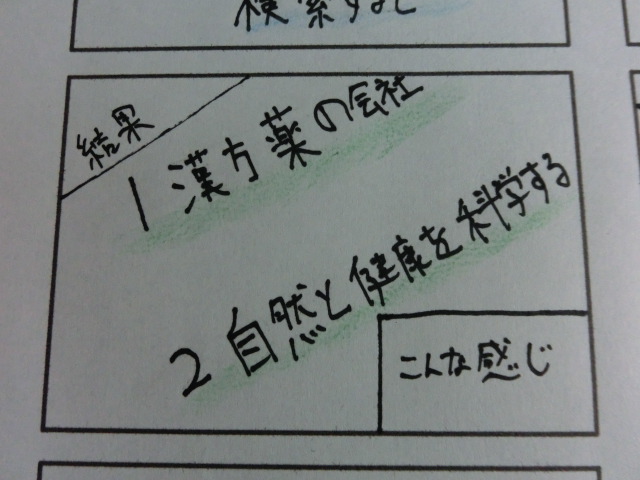 検索すると
結果
1 漢方薬の会社
2 自然と健康を科学する
こんな感じ